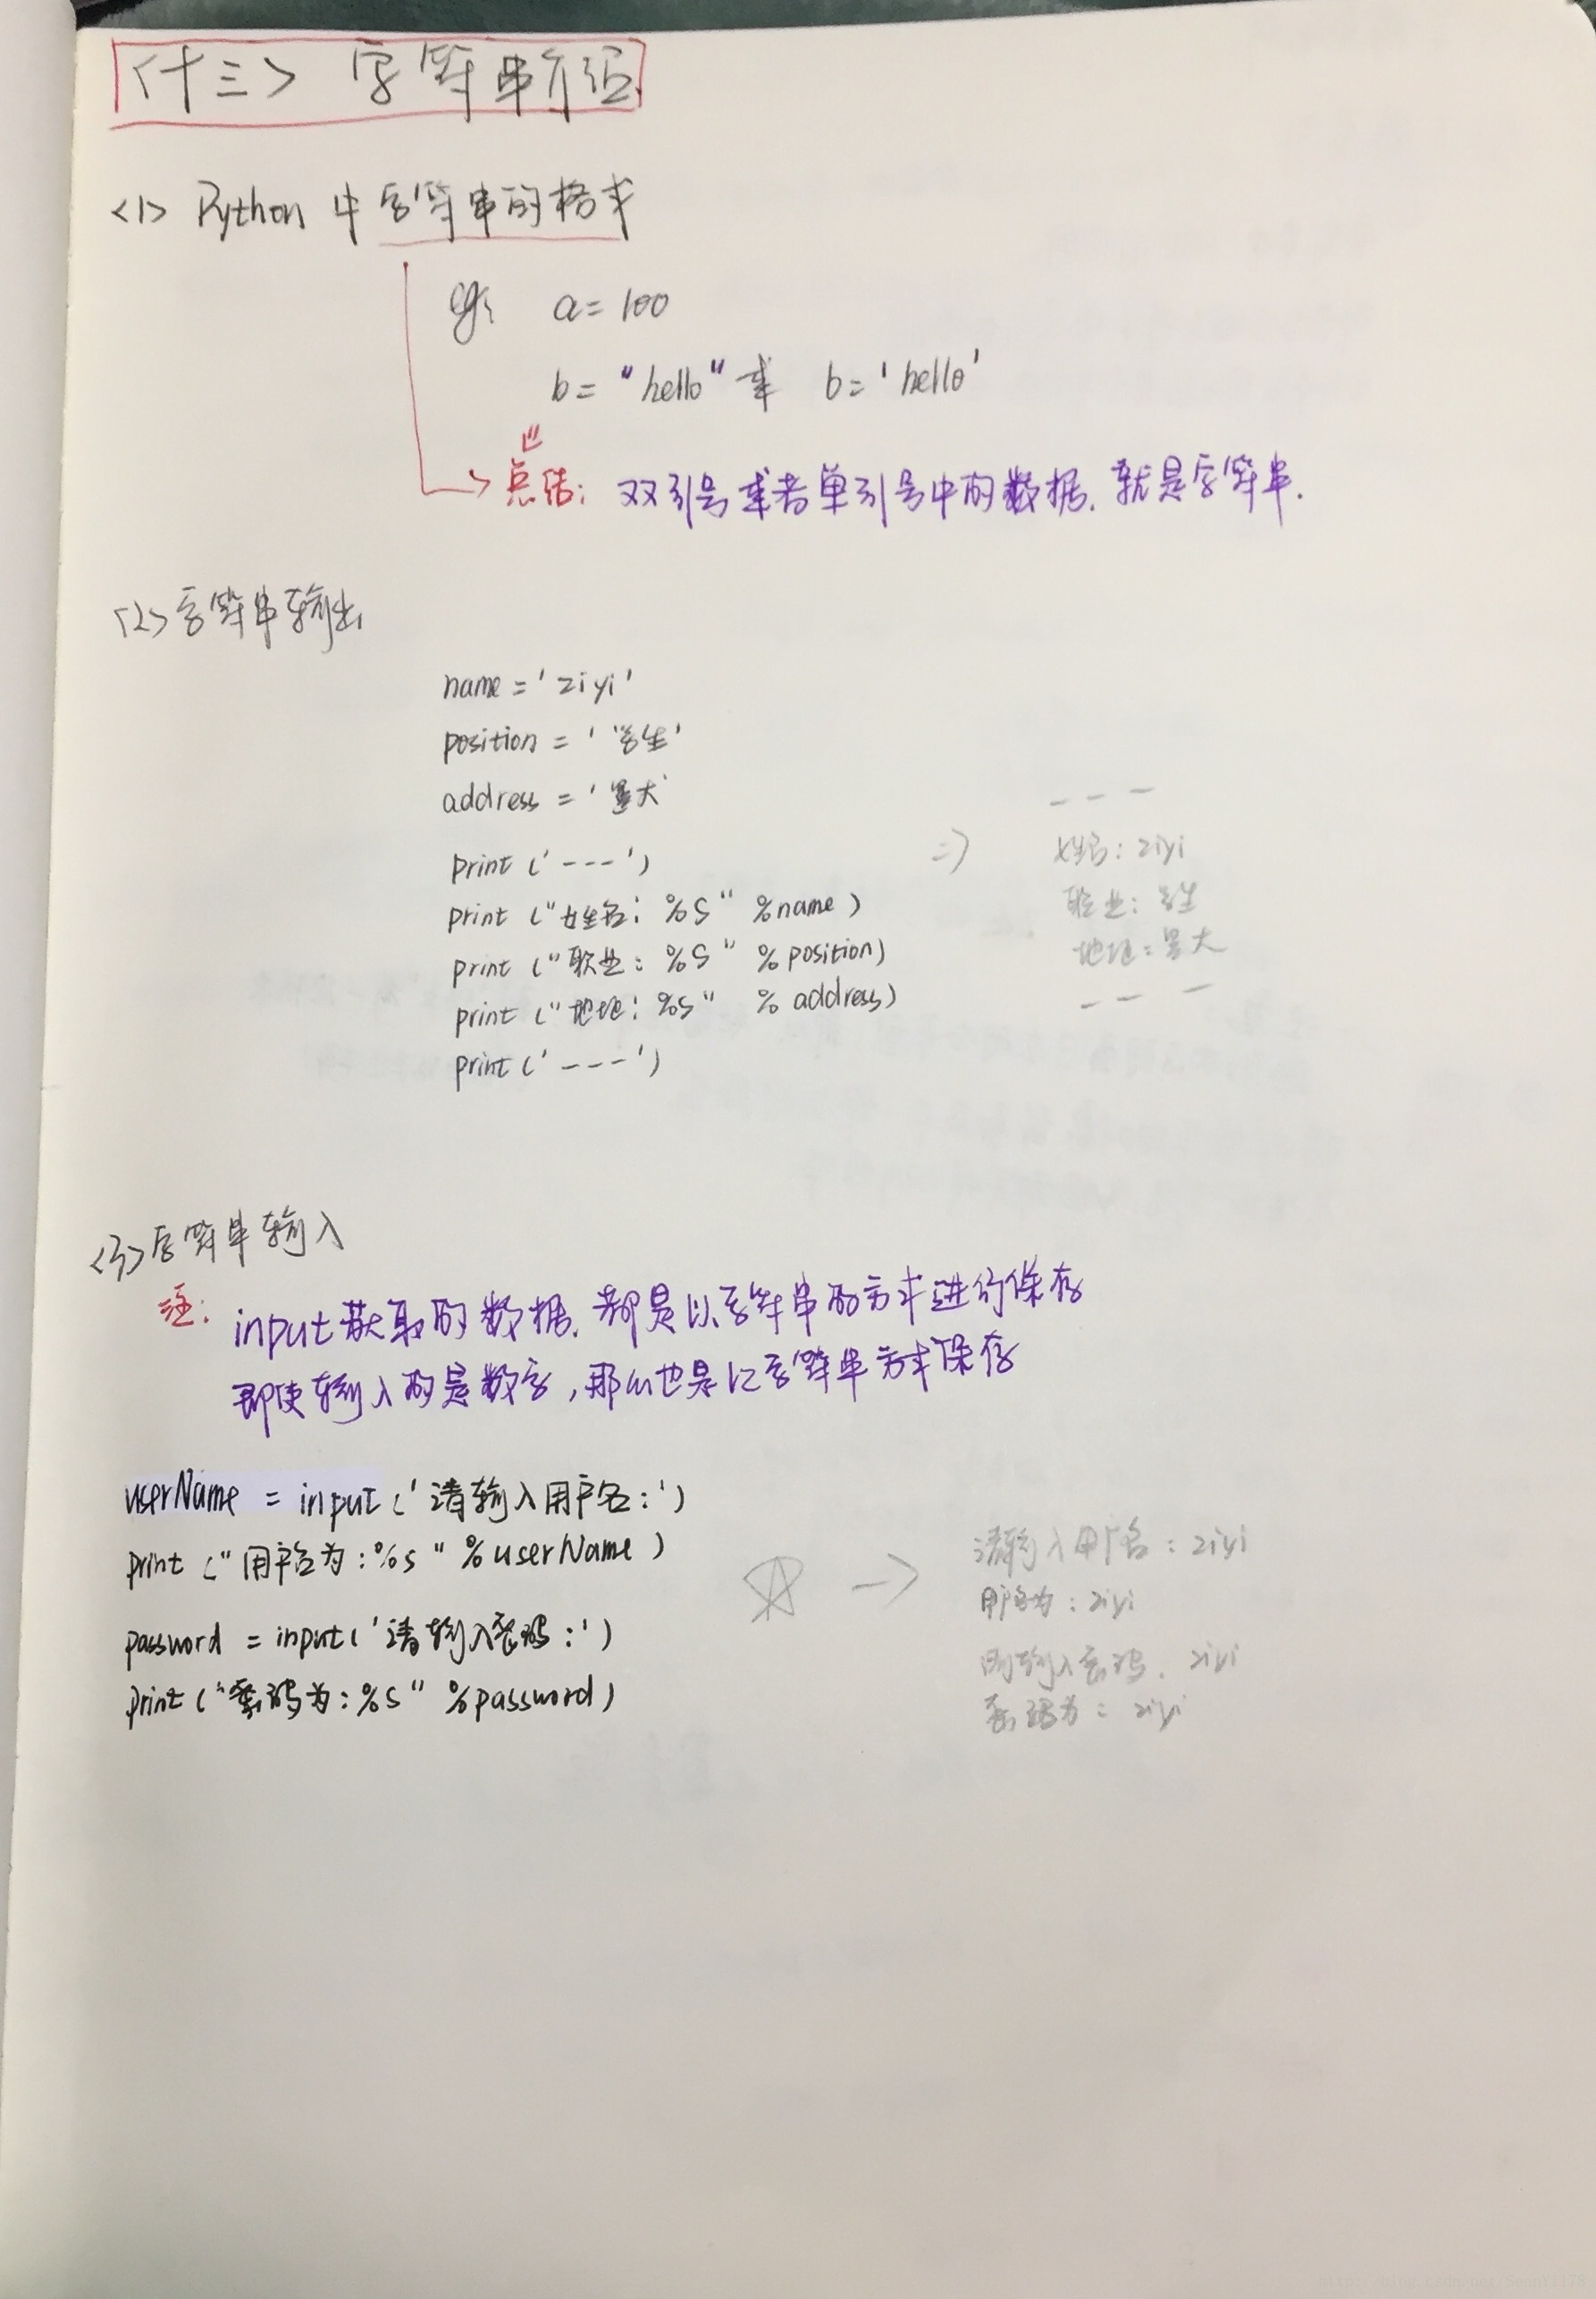 <十三> 字符串介绍
<1> Python 中字符串的格式
eg: a = 100
b = "hello" 或 b = 'hello'
总结: 双引号或者单引号中的数据.就是字符串.
<2>字符串输出
name = 'ziyi'
position = '学生'
address = '大'
print ('---')
print ("姓名: %s" %name)
print ("职业: %s" %position)
print ("地址: %s" % address)
print ('---')
=> ---
姓名: ziyi
职业: 学生
地址: 大
---
<3>字符串输入
注: input获取的数据.都是以字符串的方式进行保存
即使输入的是数字,那么也是以字符串方式保存
userName = input ('请输入用户名:')
print ("用户名为:%s" %userName)
password = input('请输入密码:')
print ("密码为:%s" %password)
→ 请输入用户名: ziyi
用户名为: ziyi
请输入密码: ziyi
密码为: ziyi